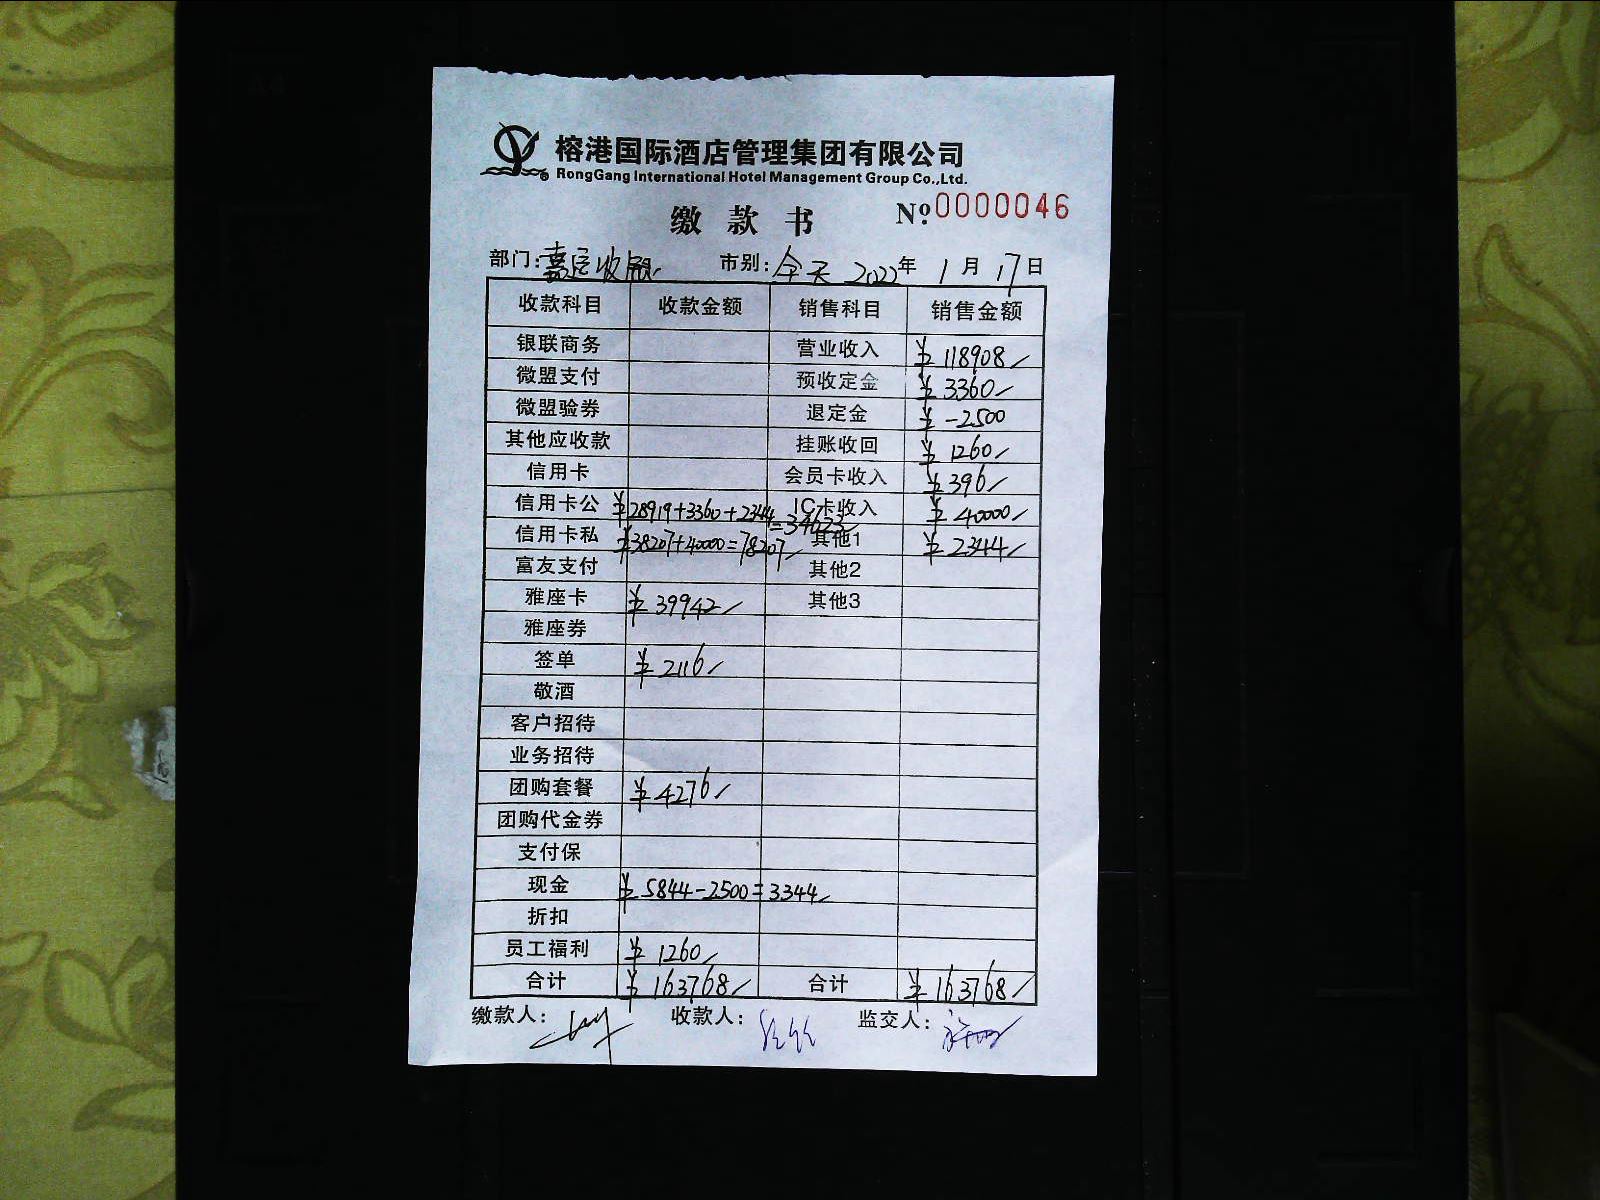 榕港国际酒店管理集团有限公司
RongGang International Hotel Management Group Co.,Ltd.
缴款书 №0000046
部门: 嘉宾收银 市别: 全天 2022年 1月 17日
收款科目 收款金额 销售科目 销售金额
银联商务 营业收入 ¥118908
微盟支付 预收定金 ¥3360
微盟验券 退定金 ¥-2500
其他应收款 挂账收回 ¥1260
信用卡 会员卡收入 ¥396
信用卡公 ¥28919+3360+2344=34623 IC卡收入 ¥40000
信用卡私 ¥38207+40000=78207 其他1 ¥2344
富友支付 其他2
雅座卡 ¥39942 其他3
雅座券
签单 ¥2116
敬酒
客户招待
业务招待
团购套餐 ¥4276
团购代金券
支付保
现金 ¥5844-2500=3344
折扣
员工福利 ¥1260
合计 ¥163768 合计 ¥163768
缴款人: 收款人: 监交人: